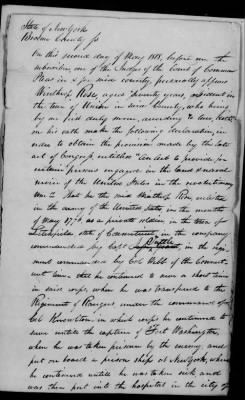 State of New York
Broome County ss
On this second day of May 1818, before me the
subscriber, one of the Judges of the Court of Common
Pleas in & for said county, personally appears
Rose, aged seventy years, resident in
the town of Union in said County, who being
by me first duly sworn, according to law, doth
on his oath make the following declaration, in
order to obtain the provision made by the late
act of Congress, entitled "an act to provide for
certain persons engaged in the land & naval
service of the United States in the revolutionary
war": That he the said Rose, enlisted
in the army of the United States in the month
of May 1776, as a private soldier in the town of
Litchfield state of Connecticut, in the company
commanded by Capt in the regi
ment commanded by Col Webb of the Connect
icut line: that he continued to serve a short time
in said corps, when he was transfered to the
Regiment of Rangers under the command of
Col Knowlton, in which corps he continued to
serve untill the capture of Fort Washington,
when he was taken prisoner by the enemy, and
put on board a prison ship at New York, where
he continued untill he was taken sick and
was then put into the hospital in the city of